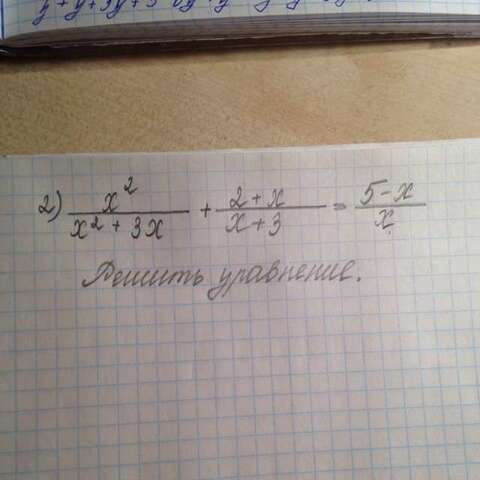 2) x²/(x² + 3x) + (2 + x)/(x + 3) = (5 - x)/x
Решить уравнение.